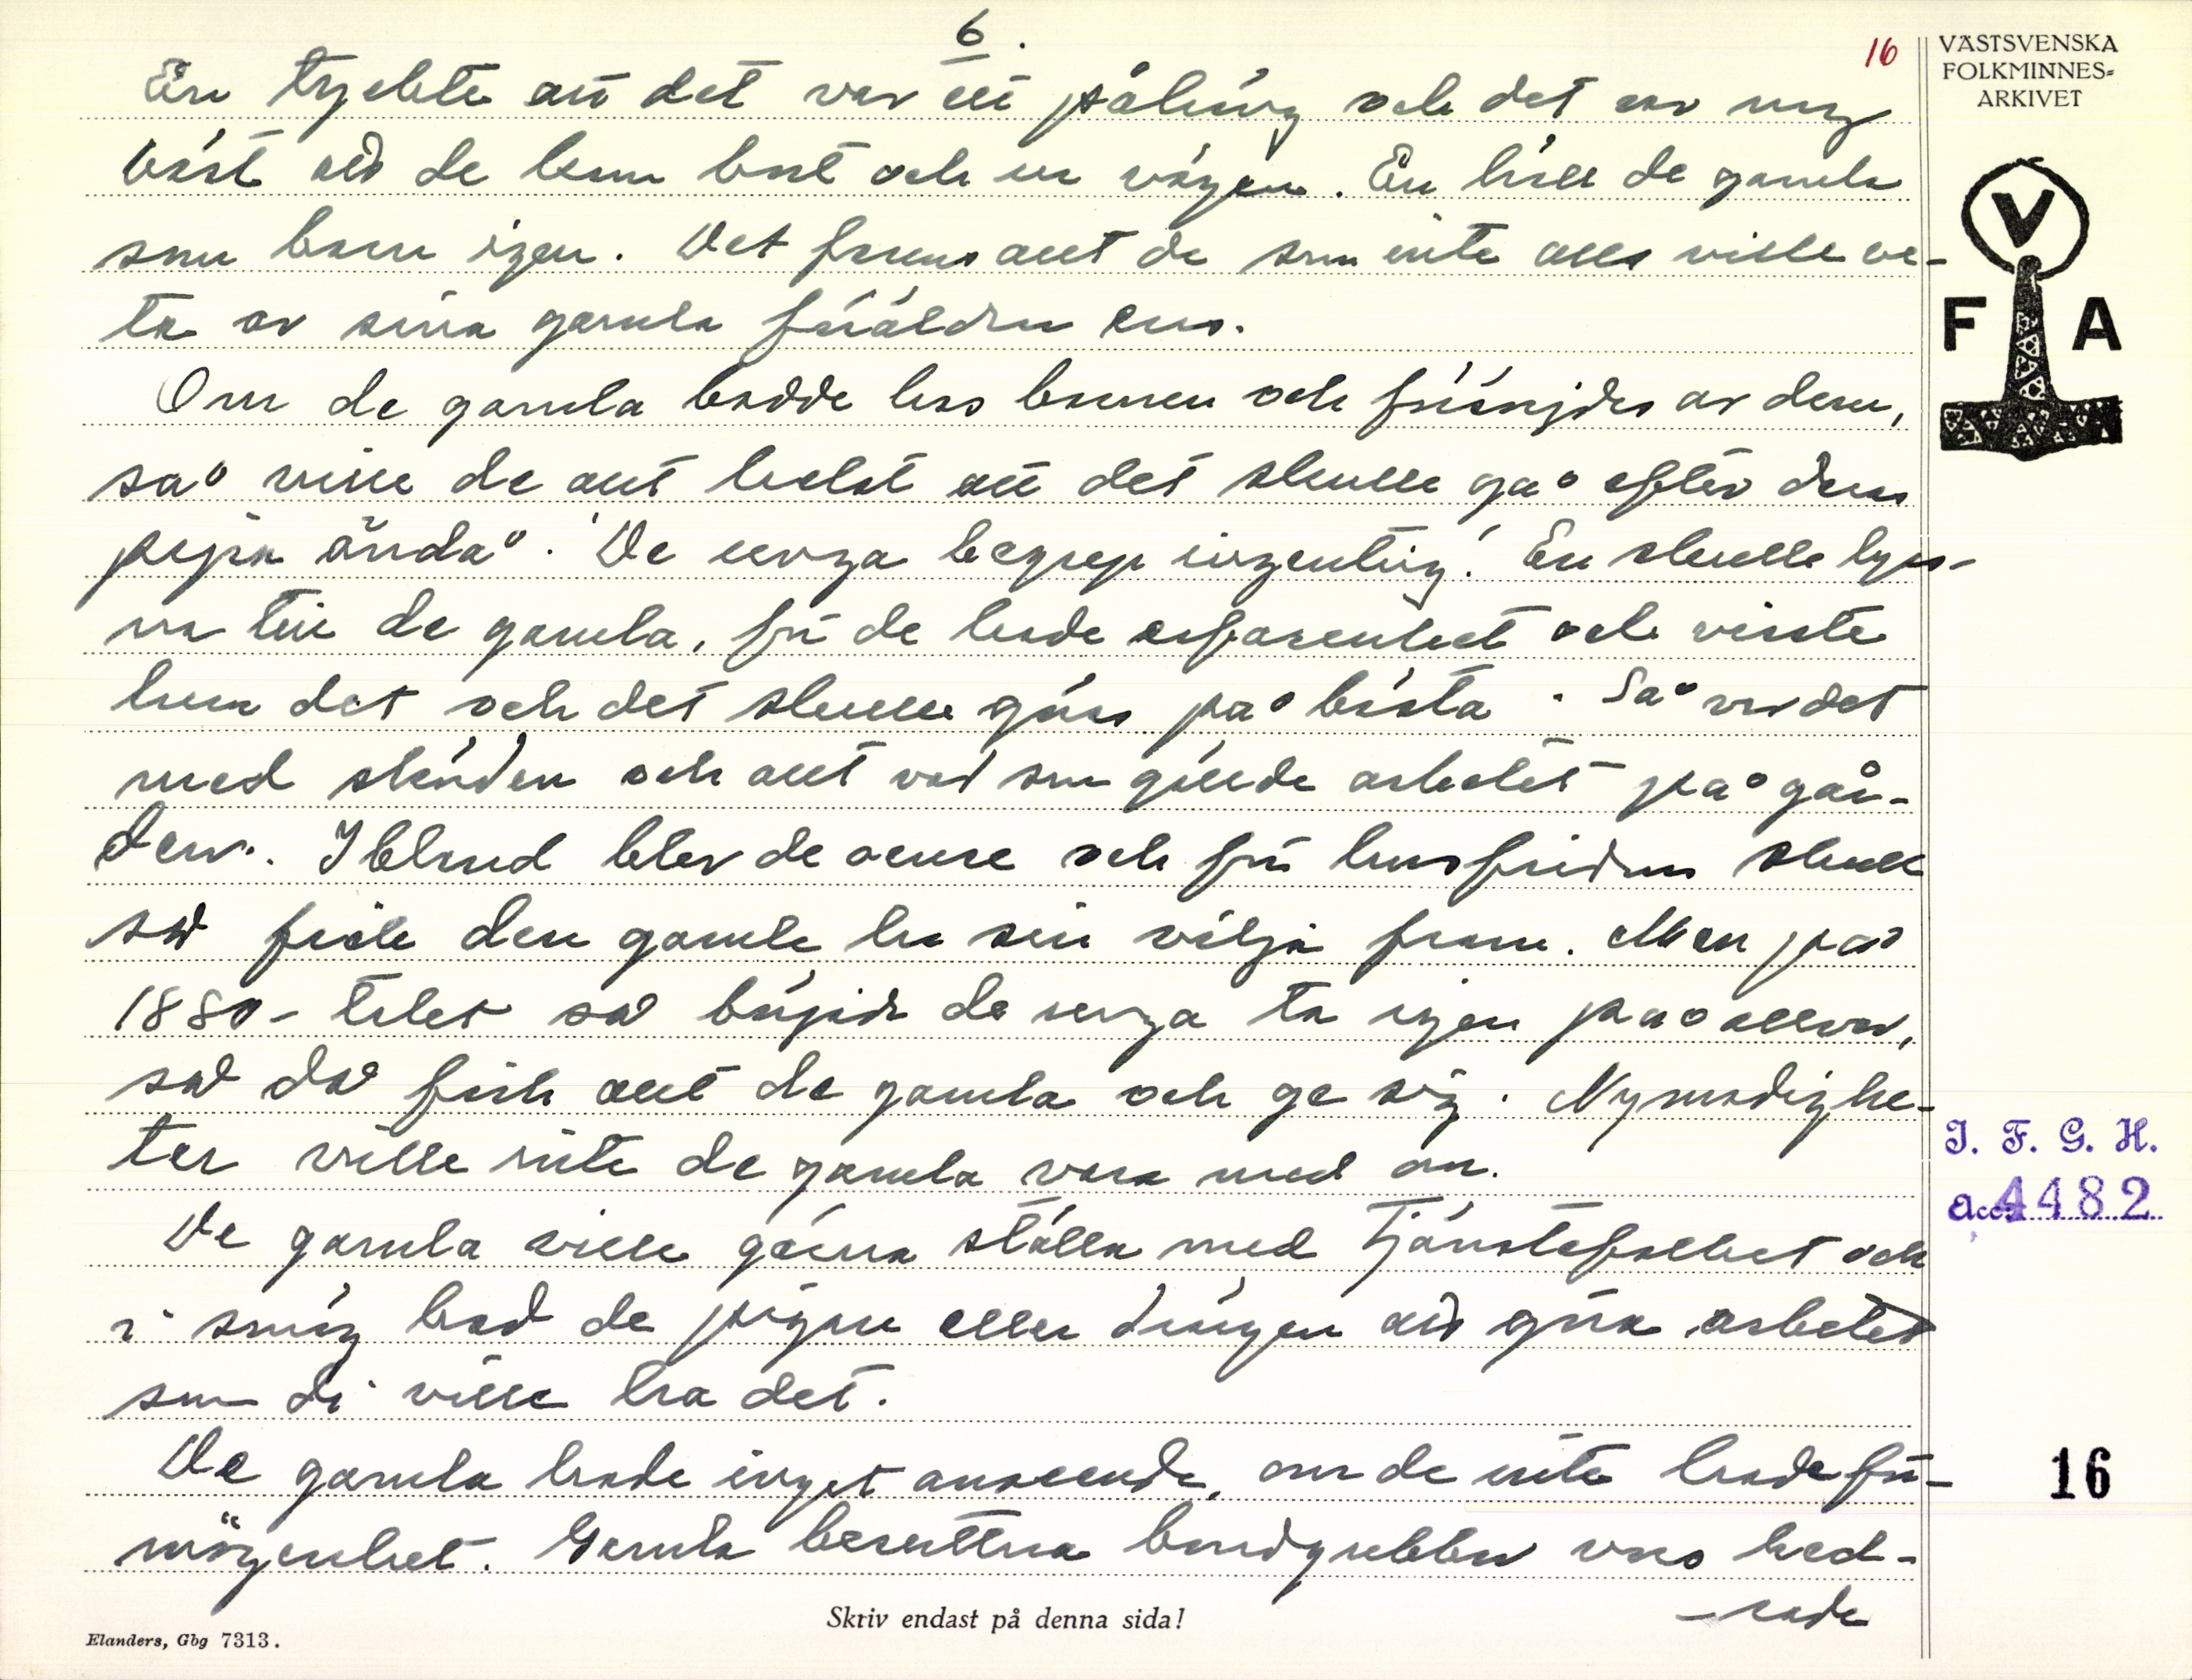 6.
16
VÄSTSVENSKA
FOLKMINNES-
ARKIVET
En tyckte att det var ett påhäng och det var nog
bäst att de kom bort och ur vägen. En höll de gamla
som barn igen. Det fanns allt de som inte alls ville ve-
ta av sina gamla föräldrar ens.
Om de gamla bodde hos barnen och försörjdes av dem,
så ville de allt helst att det skulle gå efter deras
pipa ändå. "De unga begrep ingenting." En skulle lyss-
na till de gamla, för de hade erfarenhet och visste
hur det och det skulle göras på bästa. Så var det
med skörden och allt vad som gällde arbetet på går-
den. Ibland blev de oense och för husfridens skull
så fick den gamle ha sin vilja fram. Men på
1880-talet så började de unga ta igen på allvar,
så då fick allt de gamla och ge sig. Nymodighe-
ter ville inte de gamla vara med om.
De gamla ville gärna ställa med tjänstefolket och
i smög bad de pigan eller drängen att göra arbetet
som di ville ha det.
De gamla hade inget anseende, om de inte hade för-
mögenhet. Gamla besuttna bondgubbar vars hed-
-rade
V
F A
I. F. G. H.
Acc. 4482
16
Skriv endast på denna sida!
Elanders, Gbg 7313.